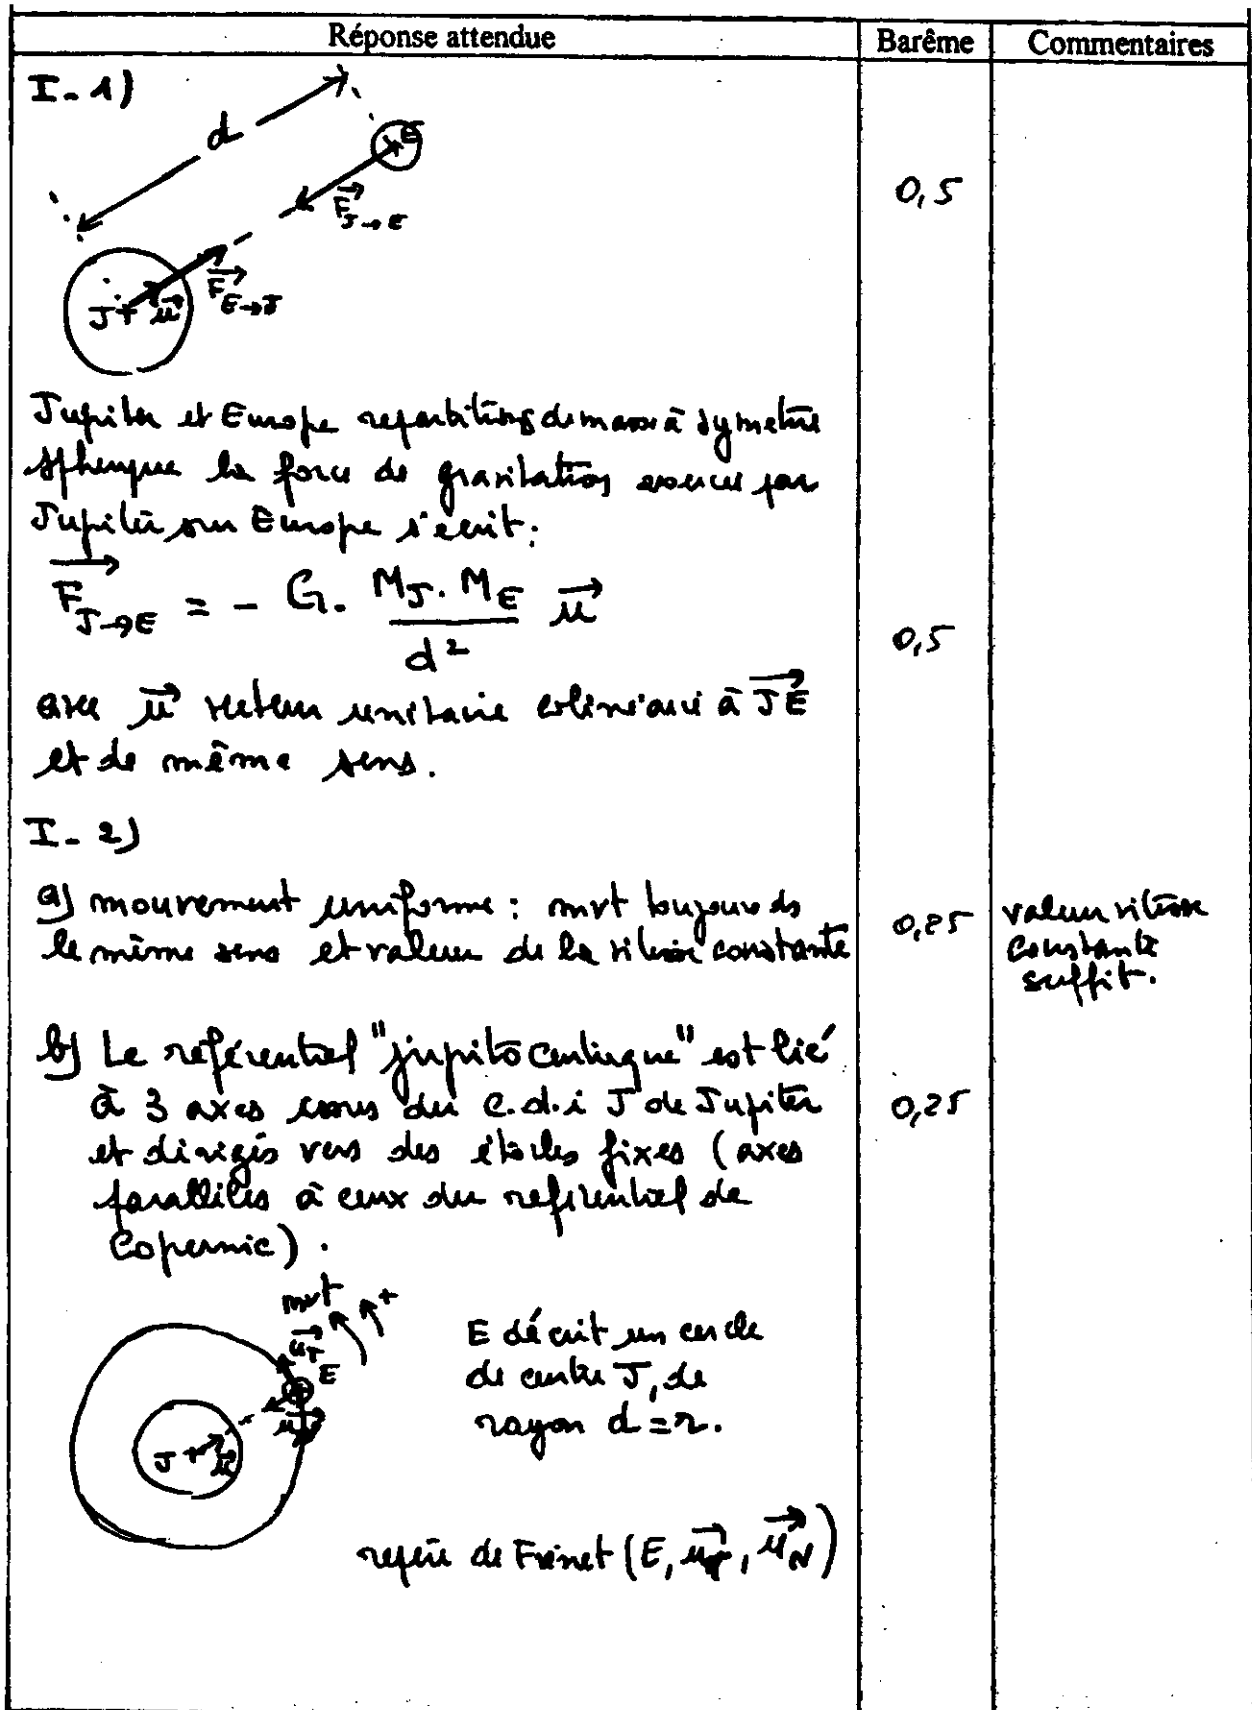 Réponse attendue Barême Commentaires
I-1)
d
E
F J→E
0,5
J + u
F E→J
Jupiter et Europe repartitions de masse à symetrie
spherique la force de gravitation exercee par
Jupiter sur Europe s'ecrit:
F J→E = - G. M_J . M_E / d² u
0,5
avec u vecteur unitaire colinéaire à JE
et de même sens.
I-2)
a) mouvement uniforme : mvt toujours ds
le même sens et valeur de la vitesse constante
0,25
valeur vitesse
constante
suffit.
b) Le référentiel "jupitocentrique" est lié
à 3 axes issus du c.d.i J de Jupiter
0,25
et dirigés vers des étoiles fixes (axes
parallèles à ceux du referentiel de
Copernic).
mvt +
u_T
E
u_N
J + u
E décrit un cercle
de centre J, de
rayon d = r.
repère de Frénet (E, u_T, u_N)